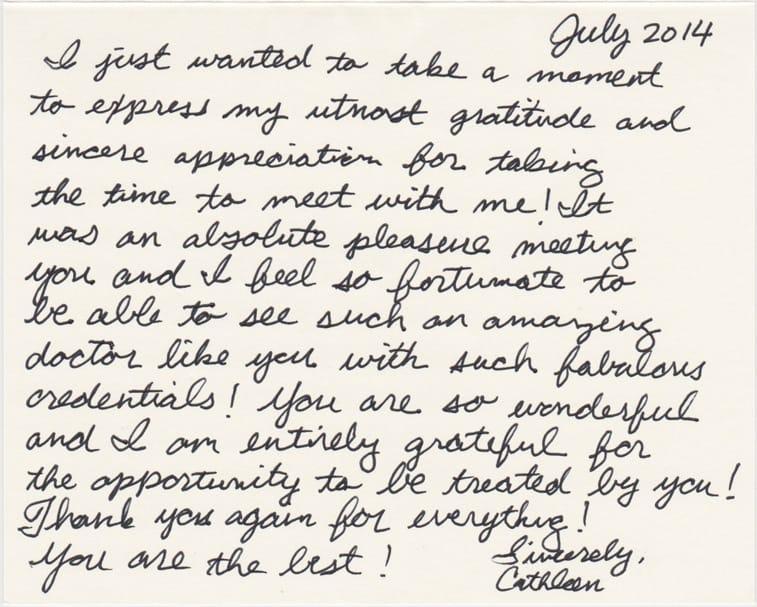 July 2014
I just wanted to take a moment
to express my utmost gratitude and
sincere appreciation for taking
the time to meet with me! It
was an absolute pleasure meeting
you and I feel so fortunate to
be able to see such an amazing
doctor like you with such fabulous
credentials! You are so wonderful
and I am entirely grateful for
the opportunity to be treated by you!
Thank you again for everything!
You are the best!
Sincerely,
Cathleen